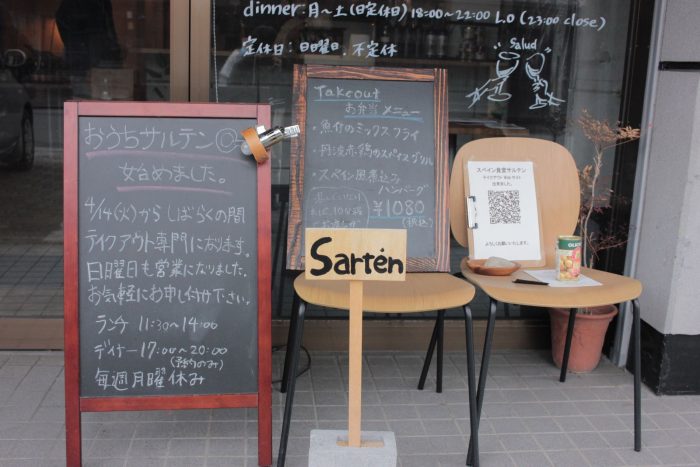 dinner:月～土(日定休日) 18:00～22:00 L.O (23:00 close)
定休日:日曜日、不定休
Salud
おうちサルテン
始めました。
4/14(火)から しばらくの間
テイクアウト専門になります。
日曜日も営業になりました。
お気軽にお申し付け下さい。
ランチ 11:30～14:00
ディナー 17:00～20:00
(予約のみ)
毎週月曜休み
Takeout
お弁当メニュー
・魚介のミックスフライ
・丹波赤鶏のスパイスグリル
・スペイン風煮込み
ハンバーグ
¥1080
(税込)
Sartén
スペイン食堂サルテン
テイクアウト予約サイト
出来ました。
よろしくお願いいたします。